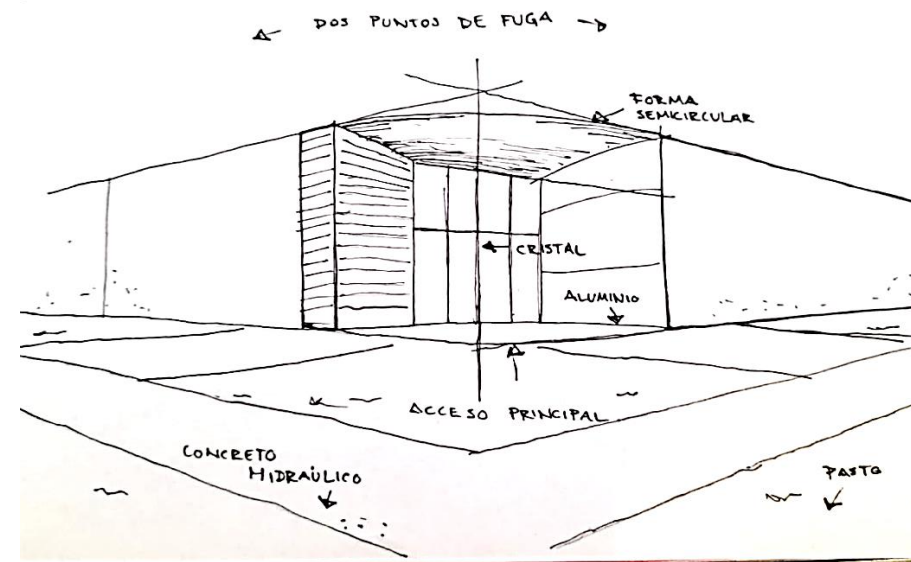 DOS PUNTOS DE FUGA
FORMA
SEMICIRCULAR
CRISTAL
ALUMINIO
ACCESO PRINCIPAL
CONCRETO
HIDRAÚLICO
PASTO